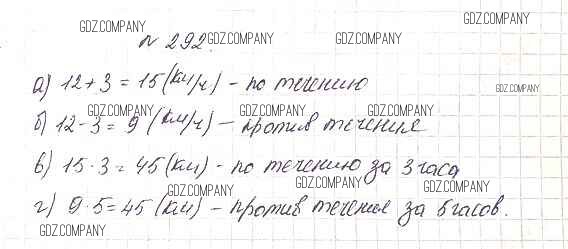 GDZ.COMPANY GDZ.COMPANY
№ 292. GDZ.COMPANY GDZ.COMPANY
а) 12+3 = 15 (км/ч) - по течению GDZ.COMPANY
GDZ.COMPANY GDZ.COMPANY GDZ.COMPANY
б) 12-3 = 9 (км/ч) - против течения
в) 15·3 = 45 (км) - по течению за 3 часа
GDZ.COMPANY GDZ.COMPANY GDZ.COMPANY
г) 9·5=45 (км) - против течения за 5 часов.
GDZ.COMPANY